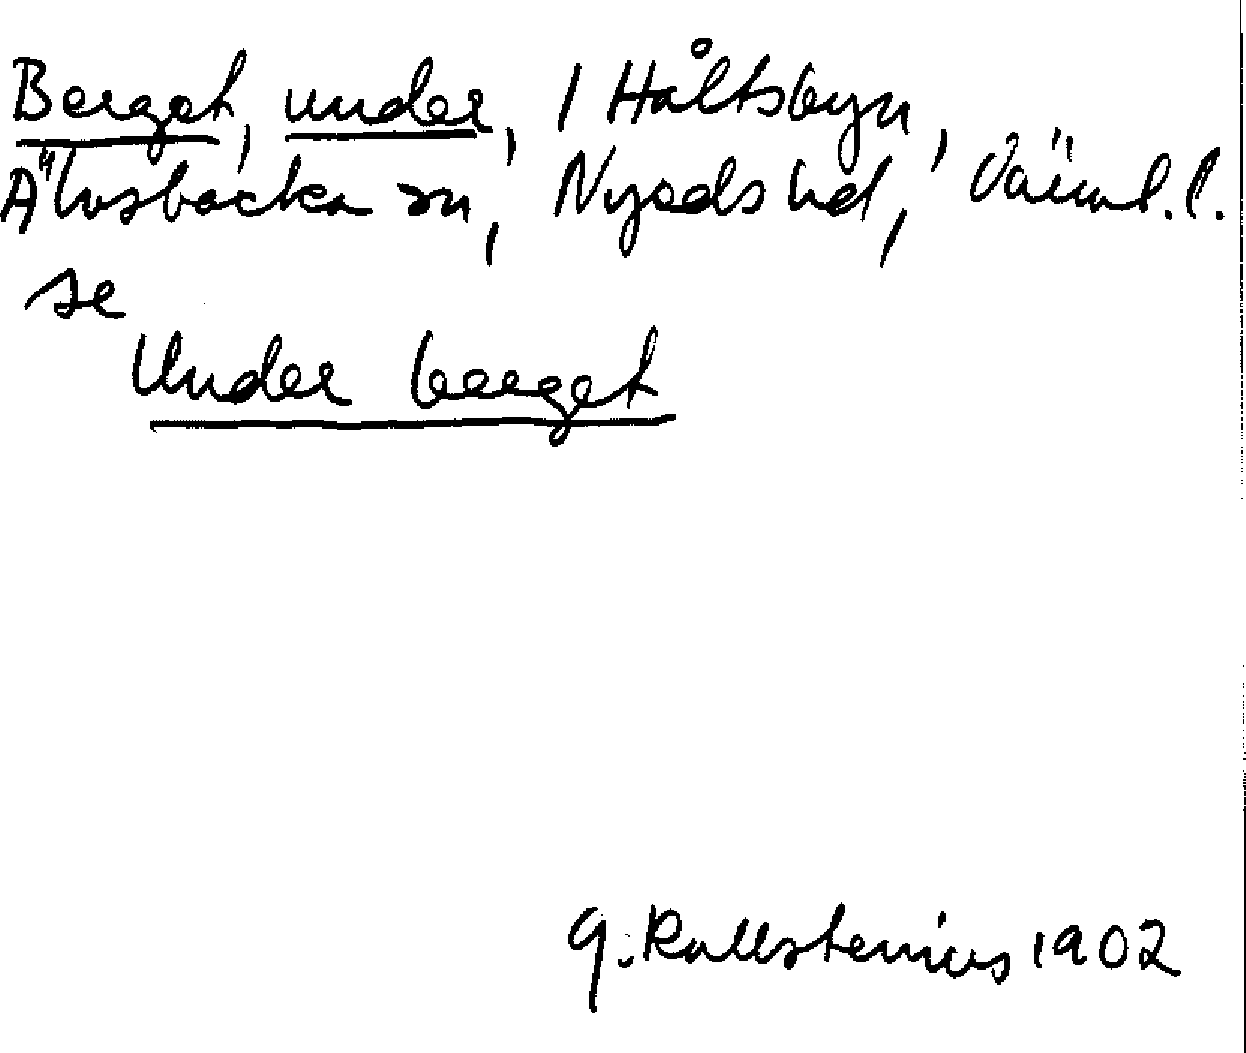 Berget, under, / Håltsbyn,
Älvsbacka sn, Nyeds hd, Värml. l.
se
Under berget
G. Kallstenius 1902